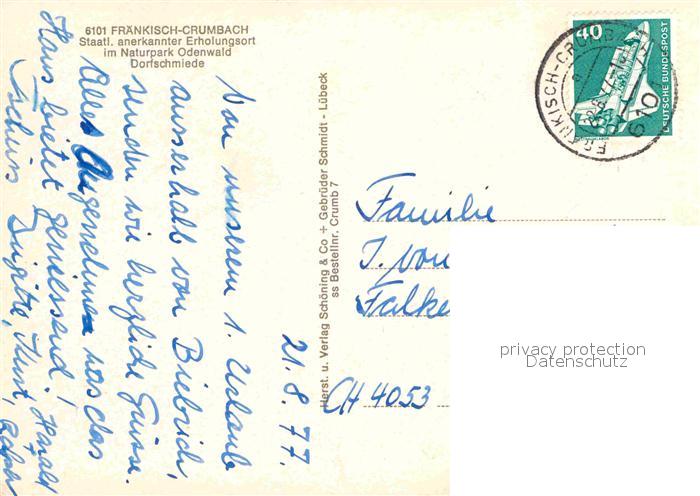 6101 FRÄNKISCH-CRUMBACH
Staatl. anerkannter Erholungsort
im Naturpark Odenwald
Dorfschmiede
21.8.77.
Von unserem 1. Urlaub
ausserhalb von Biebrich,
senden wir herzliche Grüsse.
Alles Angenehme was das
Haus bietet geniessend!
Tschüss Brigitte, Horst, Harald
Herst. u. Verlag Schöning & Co + Gebrüder Schmidt - Lübeck
ss Bestellnr. Crumb 7
40
DEUTSCHE BUNDESPOST
FRÄNKISCH-CRUMB
610
Familie
J. von
Falke
CH 4053
privacy protection
Datenschutz